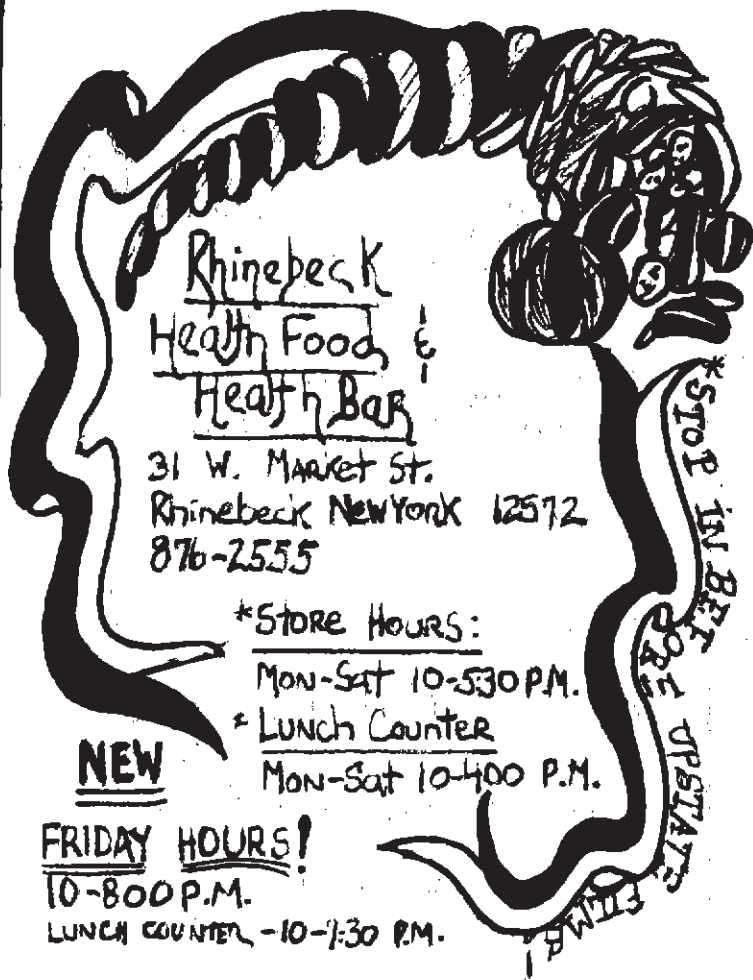 Rhinebeck
Health Food &
Health Bar
31 W. Market St.
Rhinebeck New York 12572
876-2555
*Store Hours:
Mon-Sat 10-530 P.M.
* Lunch Counter
Mon-Sat 10-400 P.M.
NEW
FRIDAY HOURS!
10-800 P.M.
LUNCH COUNTER -10-7:30 P.M.
*STOP IN BEFORE UPSTATE FILMS!